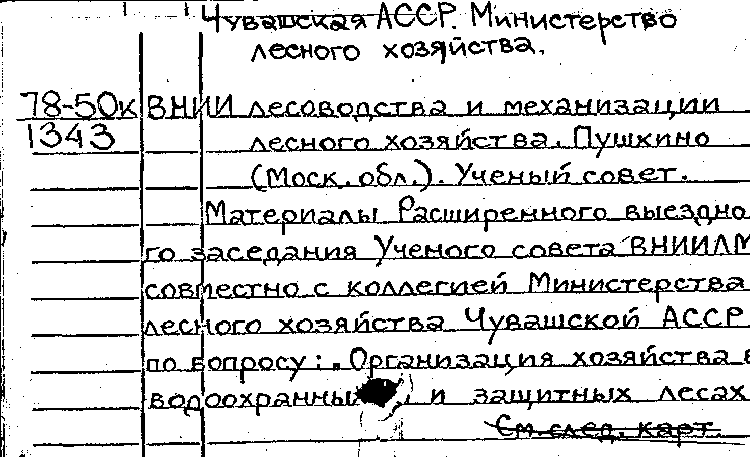 Чувашская АССР. Министерство
лесного хозяйства.
78-50к ВНИИ лесоводства и механизации
1343 лесного хозяйства. Пушкино
(Моск. обл.). Ученый совет.
Материалы Расширенного выездно
го заседания Ученого совета ВНИИЛМ
совместно с коллегией Министерства
лесного хозяйства Чувашской АССР
по вопросу: "Организация хозяйства в
водоохранных и защитных лесах
См. след. карт.